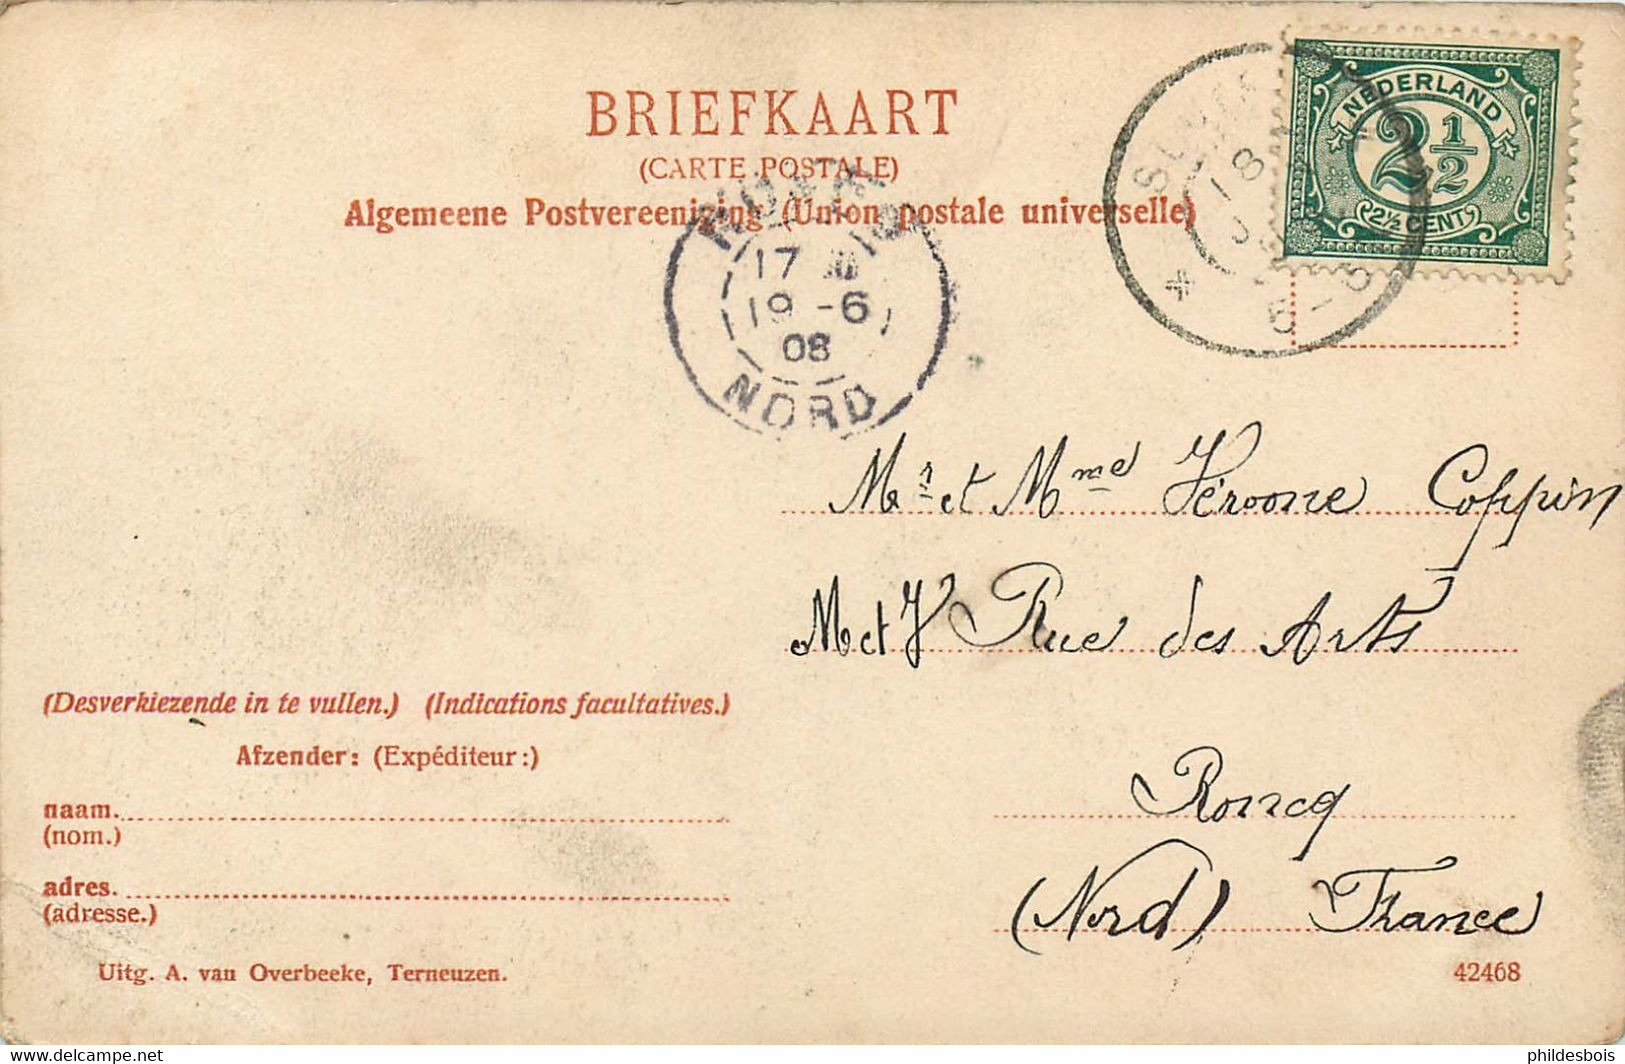 BRIEFKAART
(CARTE POSTALE)
Algemeene Postvereeniging (Union postale universelle)
NEDERLAND
2½
2½ CENT
18
17
19 -6
08
NORD
Mr et Mme Jéroome Coppin
M et J Rue des Arts
Roncq
(Nord) France
(Desverkiezende in te vullen.) (Indications facultatives.)
Afzender: (Expéditeur:)
naam.
(nom.)
adres.
(adresse.)
Uitg. A. van Overbeeke, Terneuzen.
42468
delcampe.net
phildesbois